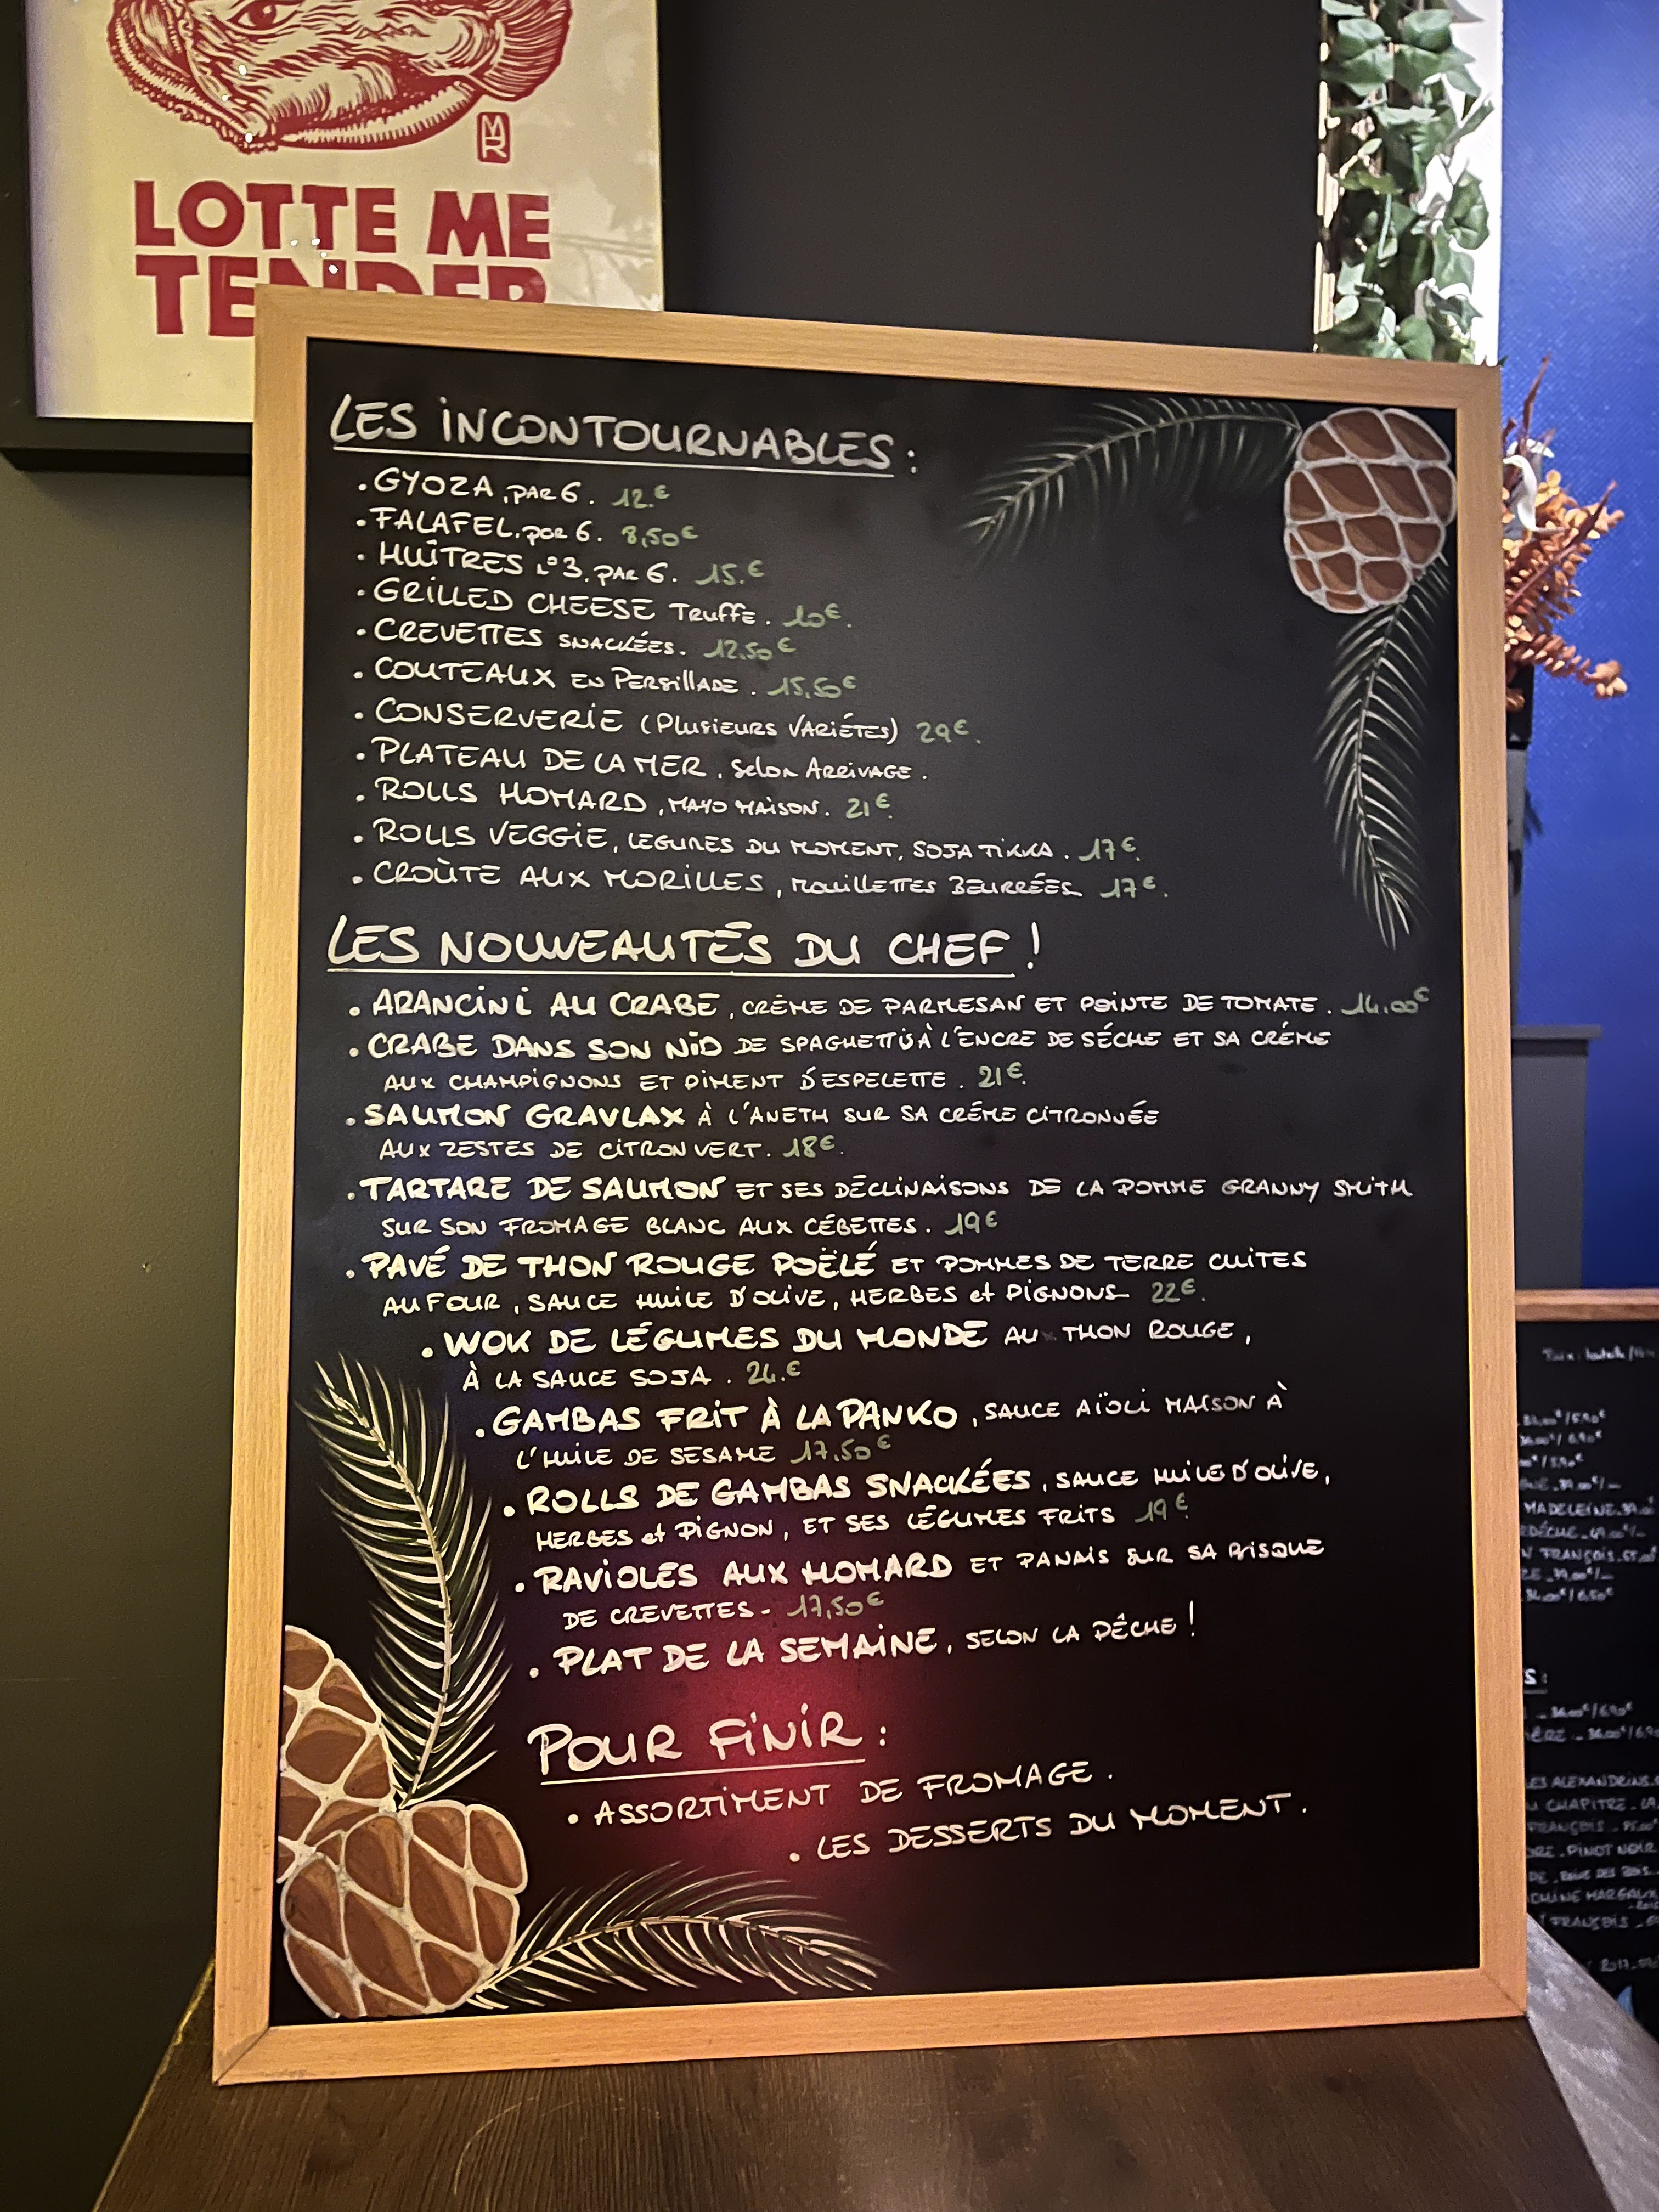 MR
LOTTE ME
TENDER
LES INCONTOURNABLES :
. GYOZA, PAR 6. 12.€
. FALAFEL. par 6. 8,50€
. HUÎTRES N°3. PAR 6. 15.€
. GRILLED CHEESE Truffe. 10€.
. CREVETTES SNACKÉES. 12.50€
. COUTEAUX EN PERSILLADE. 15,50€
. CONSERVERIE (PLUSIEURS VARIÉTES) 29€.
. PLATEAU DE LA MER, selon ARRIVAGE.
. ROLLS HOMARD, MAYO MAISON. 21€.
. ROLLS VEGGIE, LEGUMES DU MOMENT, SOJA TIKKA. 17€.
. CROÛTE AUX MORILLES, MOUILLETTES BEURRÉES 17€.
LES NOUVEAUTÉS DU CHEF !
. ARANCINI AU CRABE, CRÈME DE PARMESAN ET POINTE DE TOMATE. 14,00€
. CRABE DANS SON NID DE SPAGHETTIS À L'ENCRE DE SÉCHE ET SA CRÉME
AUX CHAMPIGNONS ET PIMENT D'ESPELETTE. 21€.
. SAUMON GRAVLAX À L'ANETH SUR SA CRÉME CITRONNÉE
AUX ZESTES DE CITRON VERT. 18€.
. TARTARE DE SAUMON ET SES DÉCLINAISONS DE LA POMME GRANNY SMITH
SUR SON FROMAGE BLANC AUX CÉBETTES. 19€
. PAVÉ DE THON ROUGE POËLÉ ET POMMES DE TERRE CUITES
AU FOUR, SAUCE HUILE D'OLIVE, HERBES et PIGNONS 22€.
. WOK DE LÉGUMES DU MONDE AU THON ROUGE,
À LA SAUCE SOJA. 24.€
. GAMBAS FRIT À LA PANKO, SAUCE AÏOLI MAISON À
L'HUILE DE SESAME 17,50€
. ROLLS DE GAMBAS SNACKÉES, SAUCE HUILE D'OLIVE,
HERBES et PIGNON, ET SES LÉGUMES FRITS 19€
. RAVIOLES AUX HOMARD ET PANAIS SUR SA BISQUE
DE CREVETTES - 17,50€
. PLAT DE LA SEMAINE, SELON LA PÊCHE !
POUR FINIR :
. ASSORTIMENT DE FROMAGE.
. LES DESSERTS DU MOMENT.
MADELEINE
FRANÇOIS
ES ALEXANDRINS
CHAPITRE
FRANÇOIS
PINOT NOIR
FRANÇOIS